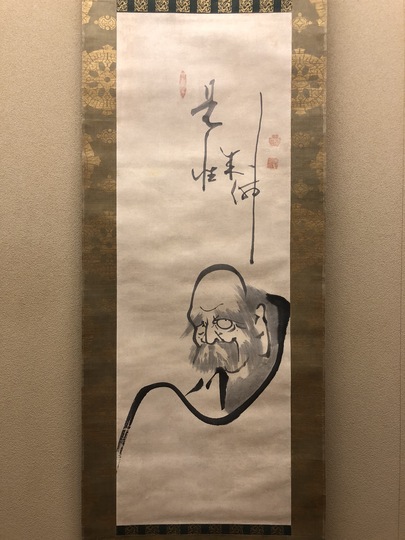 見性
成佛